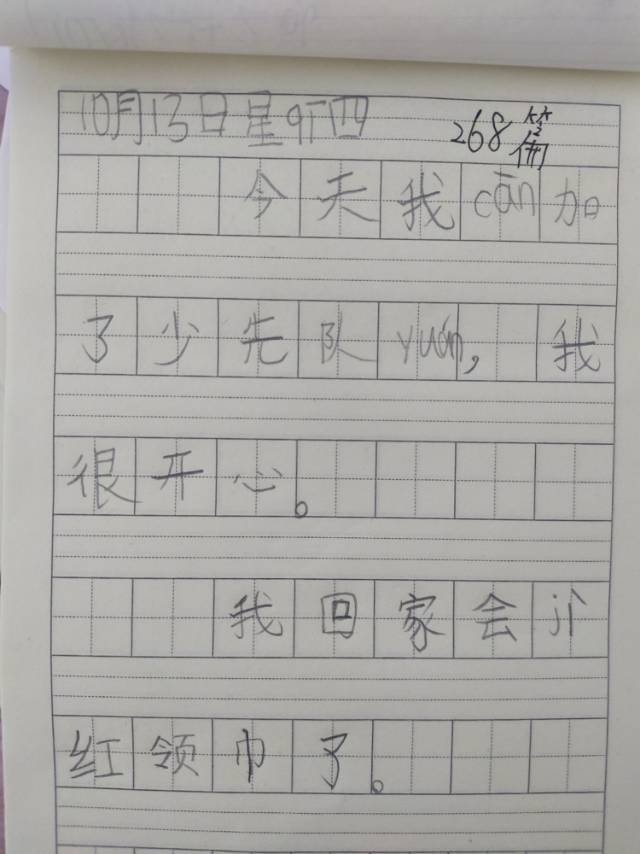 10月13日星qī四 268
今天我cān加
了少先队yuán,我
很开心。
我回家会jì
红领巾了。